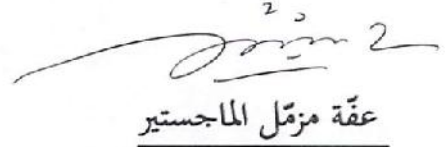 عفّة مزمّل الماجستير